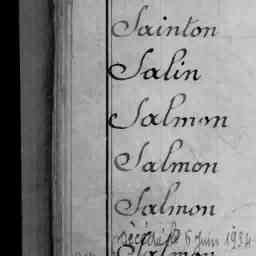 Sainton
Salin
Salmon
Salmon
Salmon
décédé le 6 Juin 1934
Salmon